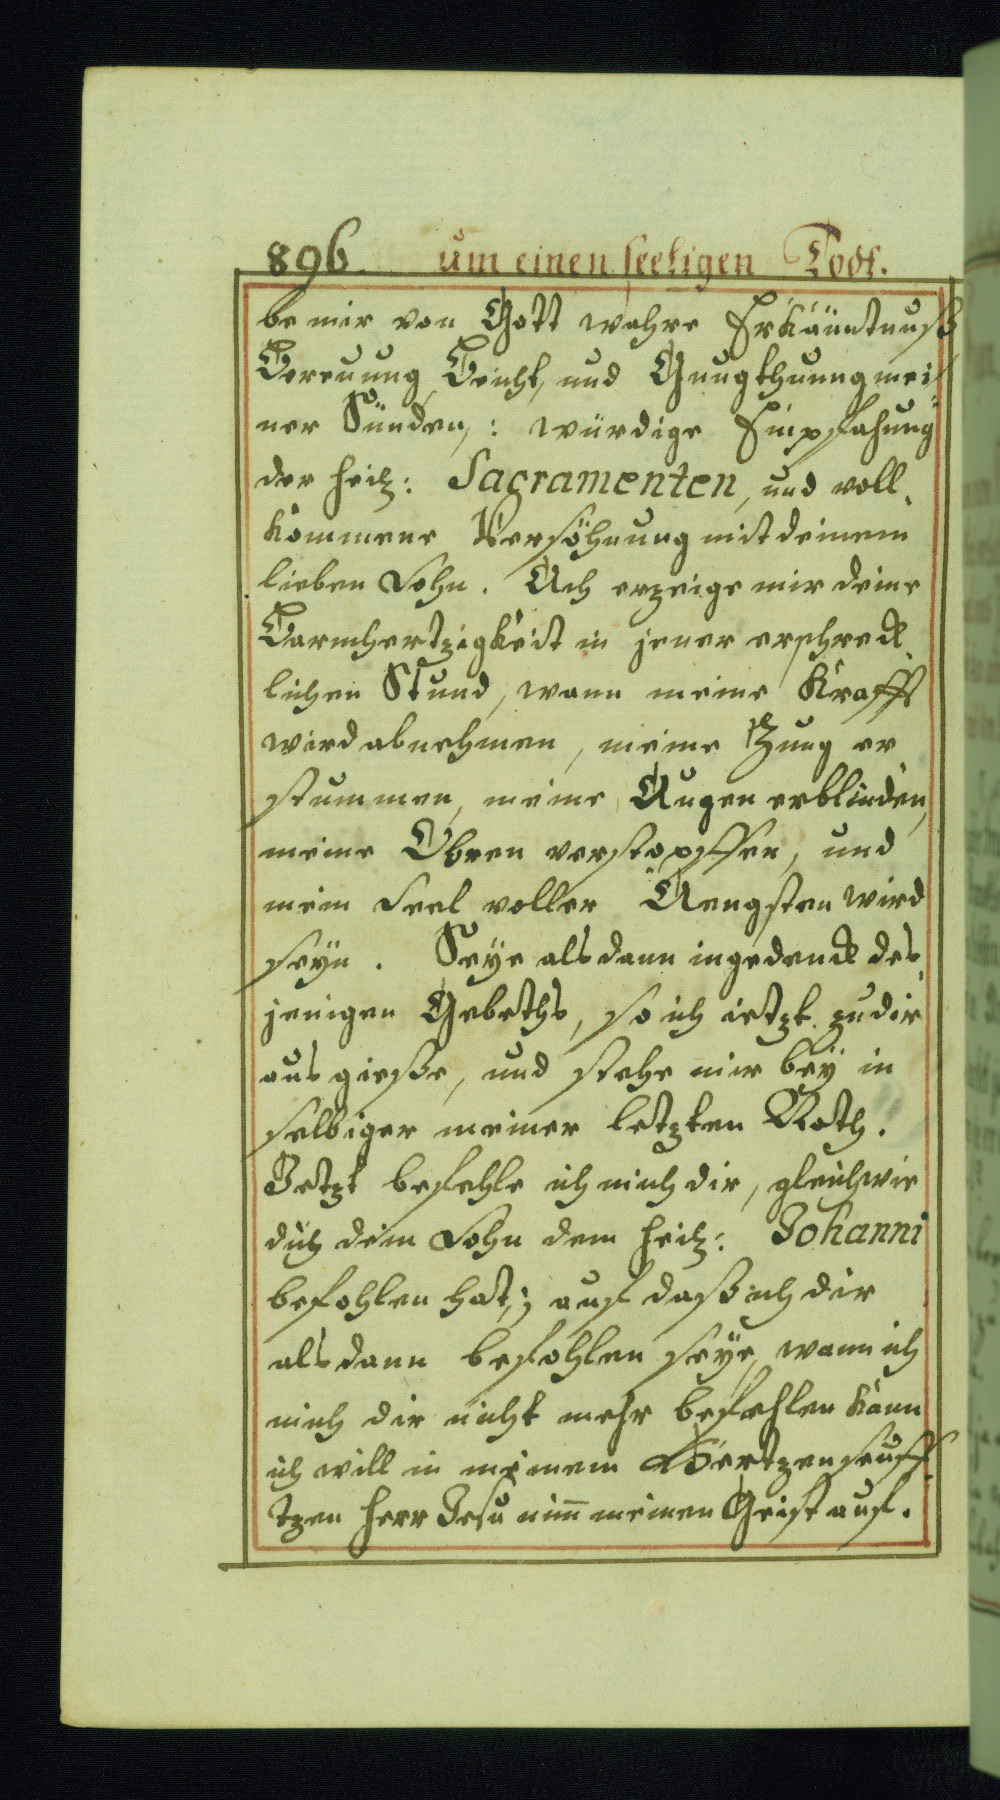 896. um einen seeligen Todt.
be mir von Gott wahre Erkäuntnuß
Bereuung Beicht, und Gnugthuung mei
ner Sünden,: würdige Empfahung
der heil: Sacramenten, und voll¸
kommene Versöhnung mit deinem
lieben Sohn. Ach erzeige mir deine
Barmhertzigkeit in jener erschreck¸
lichen Stund, wann meine Krafft
wird abnehmen, meine Zung er
stummen, meine Augen erblinden,
meine Ohren verstopffen, und
mein Seel voller Aengsten wird
seÿn. Seÿe alsdann ingedenck des¸
jenigen Gebeths, so ich ietzt zu dir
aus gieße, und stehe mir beÿ in
selbiger meiner letzten Noth.
Jetzt befehle ich mich dir, gleichwie
dich dein Sohn dem heil: Johanni
befohlen hat,; auf daß ich dir
alsdann befohlen seÿe, wann ich
mich dir nicht mehr befehlen kann
ich will in meinem Hertzen seuff¸
tzen Herr Jesu nim̅ meinen Geist auf.